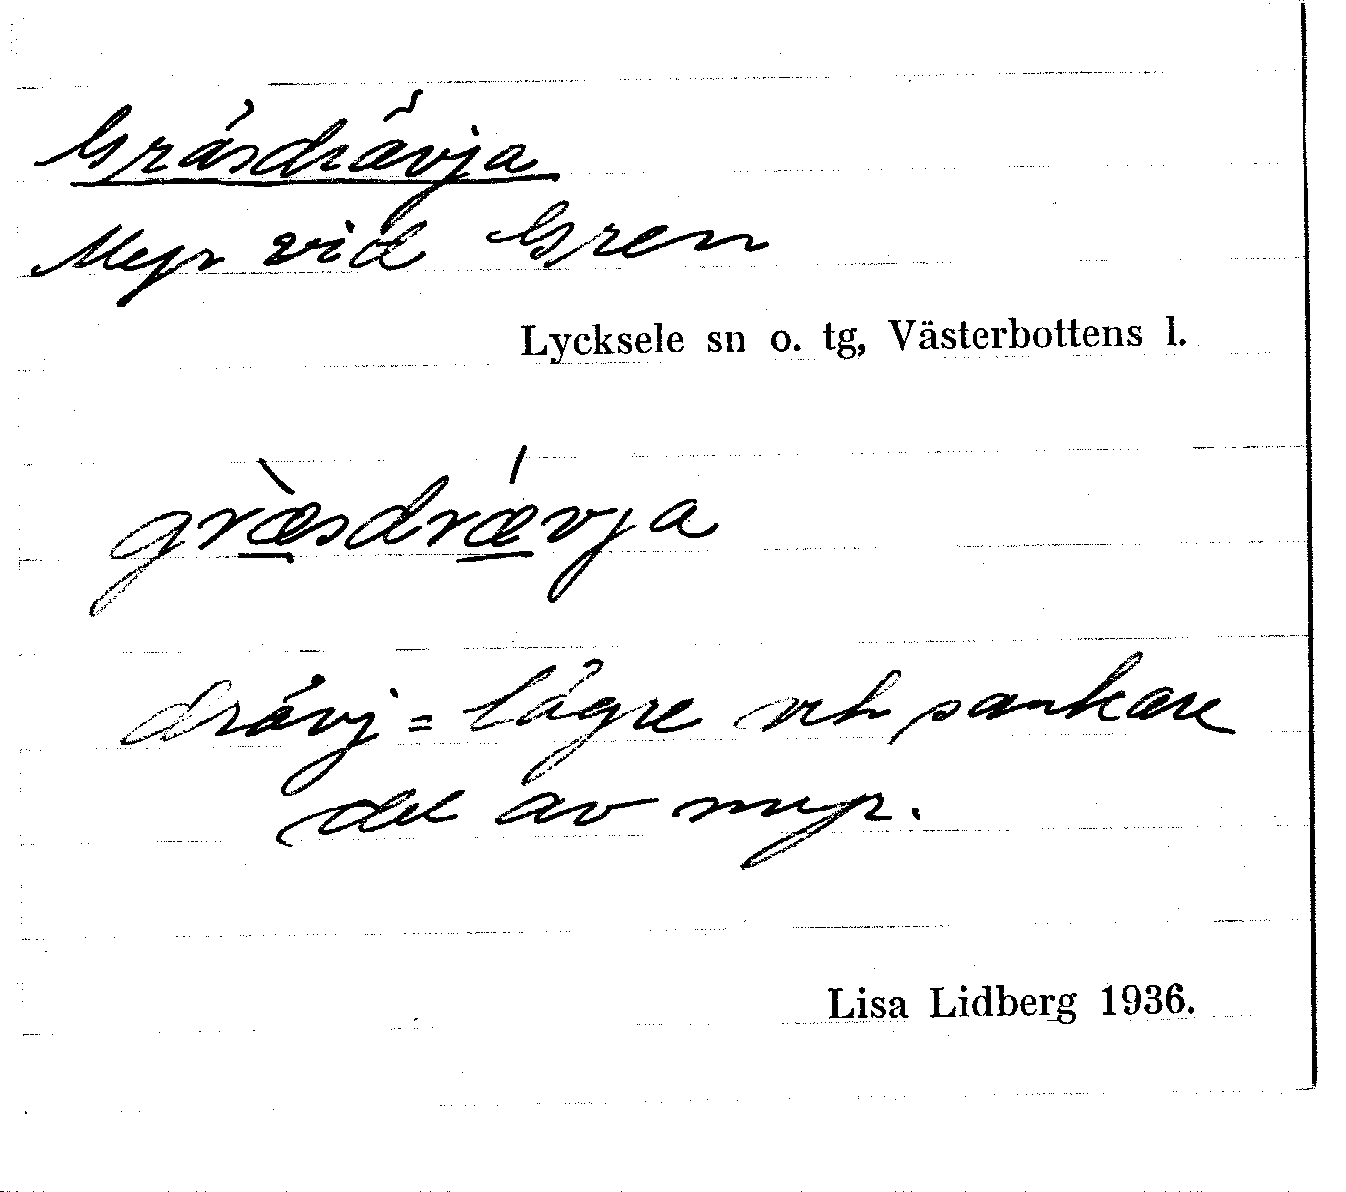 Gräsdrävja
Myr vid Gren
Lycksele sn o. tg, Västerbottens l.
græ̀sdrǽvja
drävj = lägre och sankare
del av myr.
Lisa Lidberg 1936.